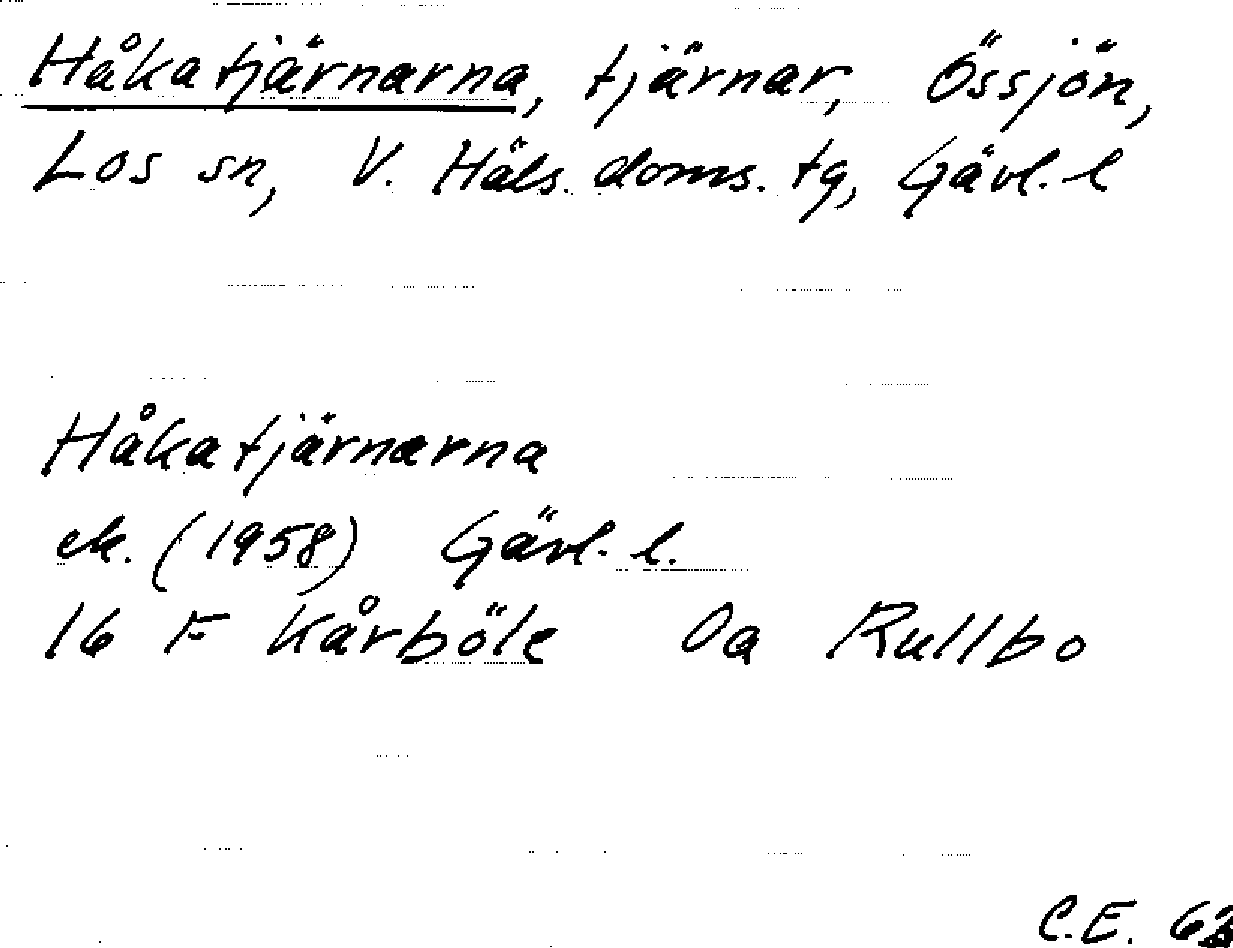 Håkatjärnarna, tjärnar, Össjön,
Los sn, V. Häls. doms. tg, Gävl. l
Håkatjärnarna
ek. (1958) Gävl. l.
16 F Kårböle 0a Rullbo
C.E.